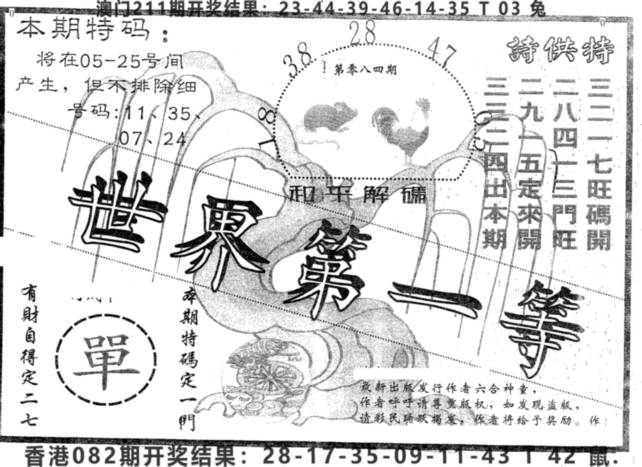 澳门211期开奖结果：23-44-39-46-14-35 T 03 兔
本期特码：
将在05-25号间
产生，但不排除细
号码：11、35、
07、24
38 28 47
第零八四期
和平解碼
詩供特
三二一七旺碼開
二八四一三門旺
二九一五定來開
三三二四出本期
世界第一等
有財自得定二七
單
本期特碼定一門
最新出版发行作者六合神童，
作者呼呼请尊重版权，如发现盗版，
请彩民踊跃揭发，作者将给予奖励。作
香港082期开奖结果：28-17-35-09-11-43 T 42 鼠.